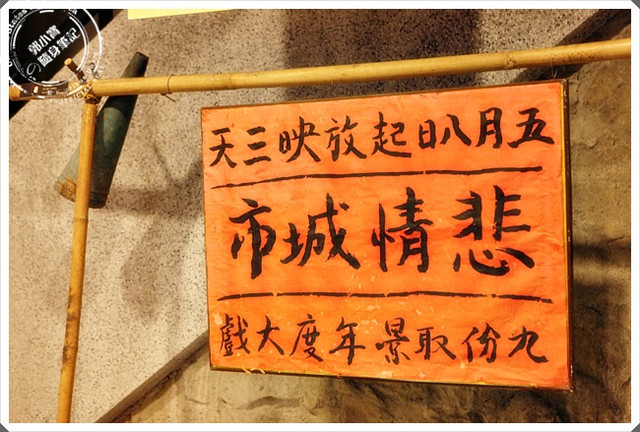 郭小寶
隨身筆記
五月八日起放映三天
悲情城市
九份取景年度大戲